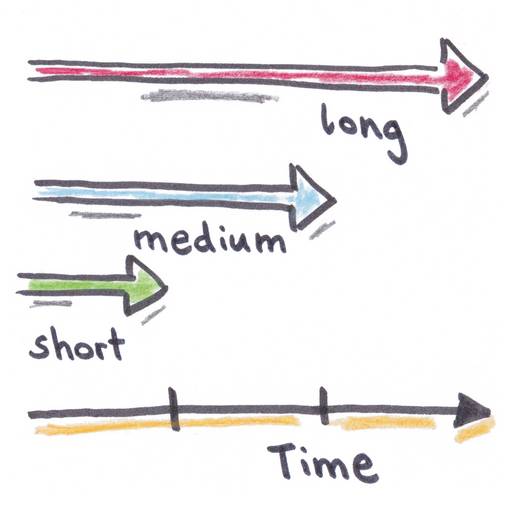 long
medium
short
Time